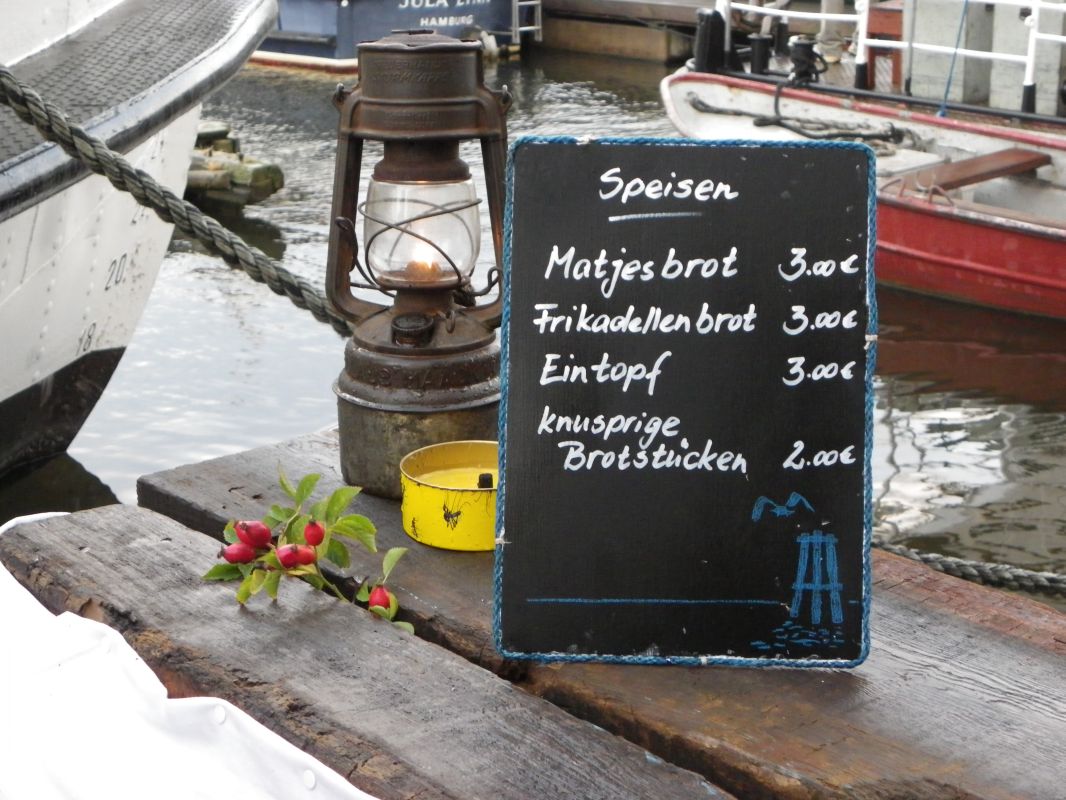 JULA LYNN
HAMBURG
Speisen
Matjesbrot 3.00€
Frikadellenbrot 3.00€
Eintopf 3.00€
knusprige
Brotstücken 2.00€
20
18